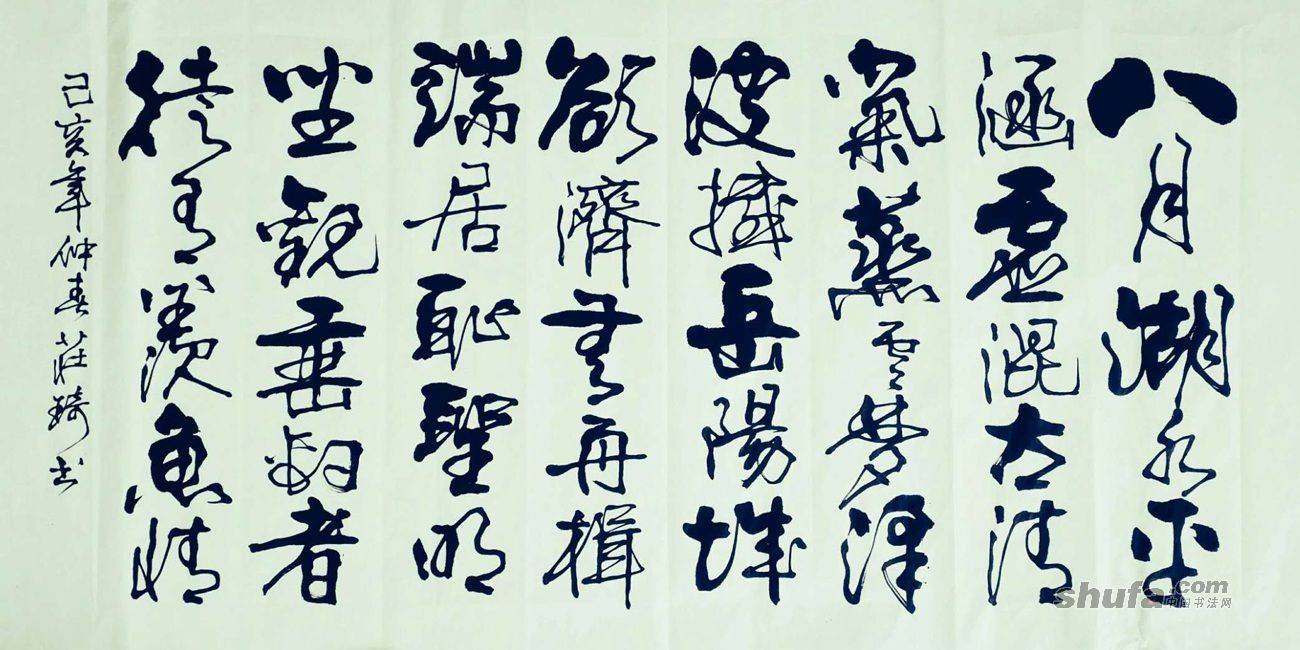 八月湖水平
涵虚混太清
氣蒸雲梦泽
波撼岳陽城
欲濟无舟楫
端居耻聖明
坐觀垂釣者
徒有羨魚情
己亥年仲春莊琦书
shufa.com
中国书法网